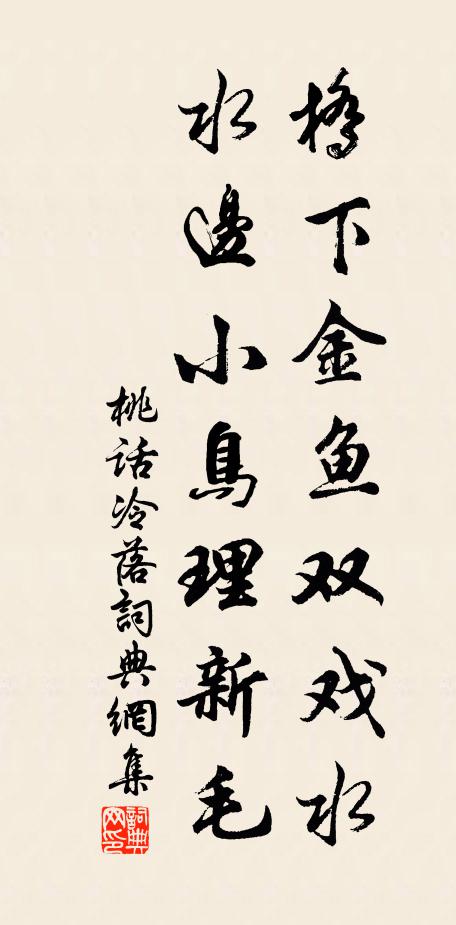 橋下金鱼双戏水
水邊小鳥理新毛
桃话冷落詞典網集
詞典網印